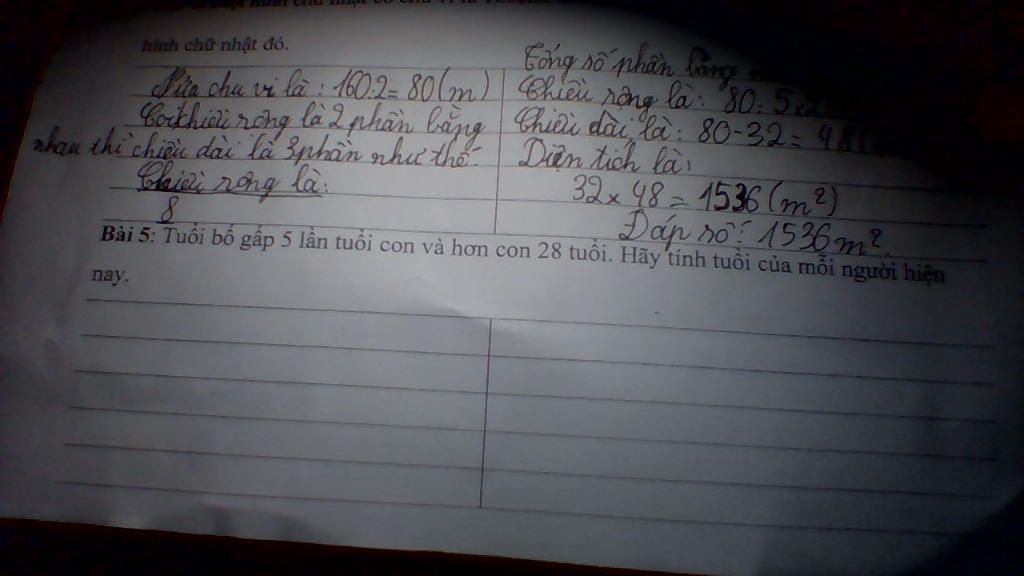 hình chữ nhật đó.
Nửa chu vi là: 160:2=80(m)
Coi chiều rộng là 2 phần bằng
nhau thì chiều dài là 3 phần như thế.
Chiều rộng là:
8
Tổng số phần bằng
Chiều rộng là: 80:5x2
Chiều dài là: 80-32=48
Diện tích là:
32x48=1536(m²)
Đáp số: 1536m².
Bài 5: Tuổi bố gấp 5 lần tuổi con và hơn con 28 tuổi. Hãy tính tuổi của mỗi người hiện
nay.